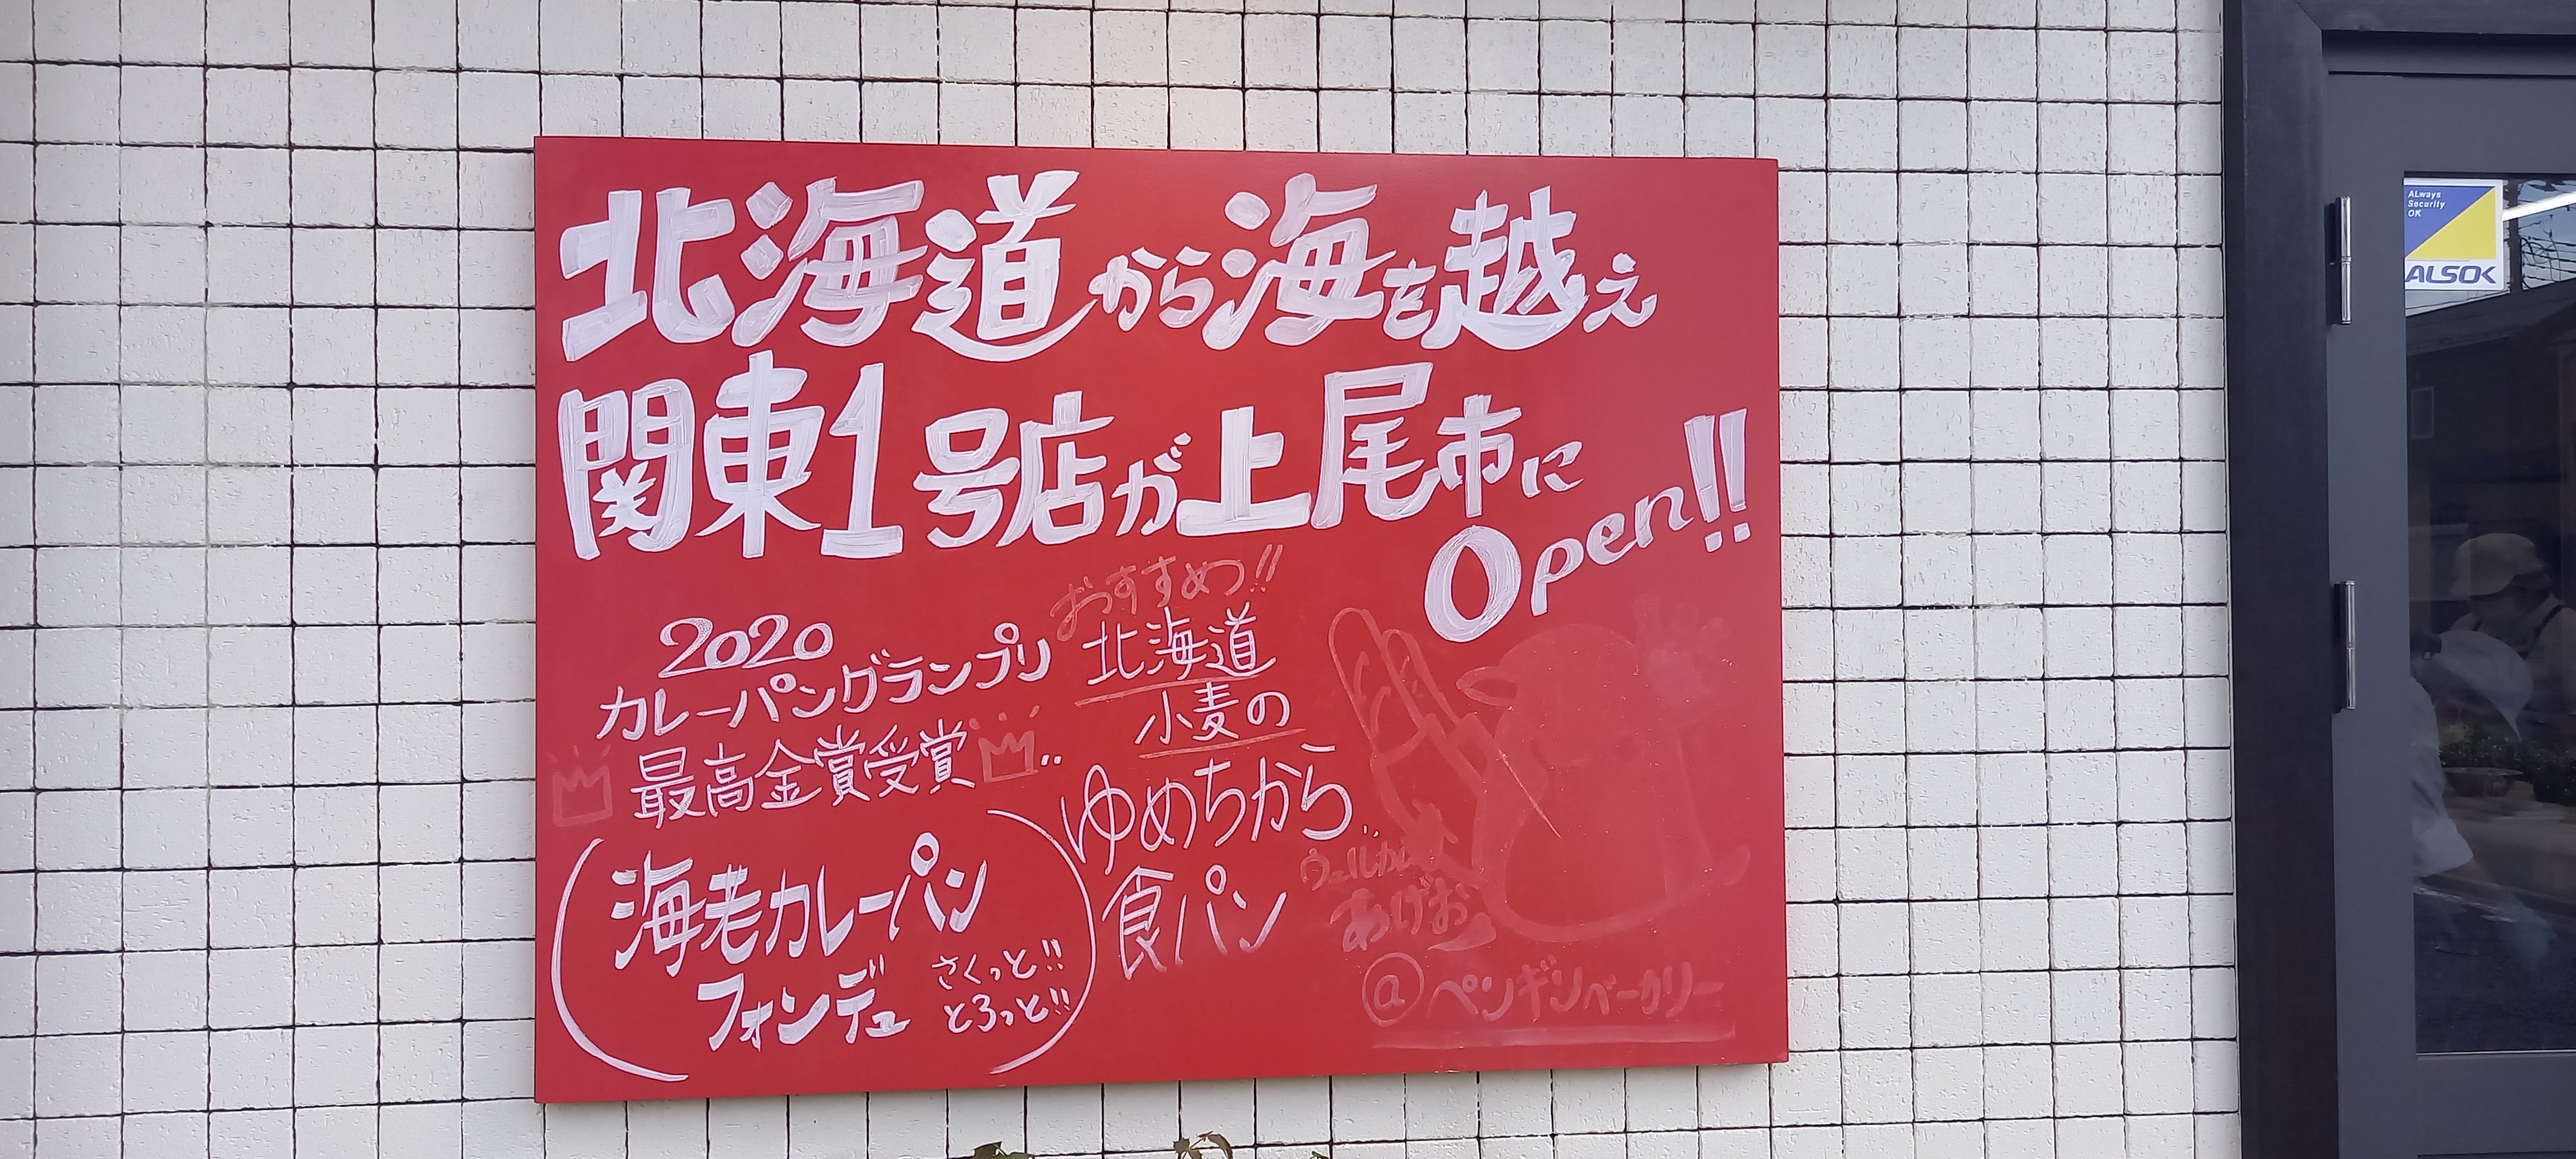 北海道から海を越え
関東1号店が上尾市に
Open!!
2020
カレーパングランプリ
最高金賞受賞‥
海老カレーパン
フォンデュ
さくっと!!
とろっと!!
おすすめ!!
北海道
小麦の
ゆめちから
食パン
あげお
@ペンギンベーカリー
ALways
Security
OK
ALSOK